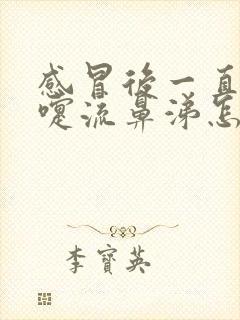 感冒後一直
嚏流鼻涕怎
李寶英